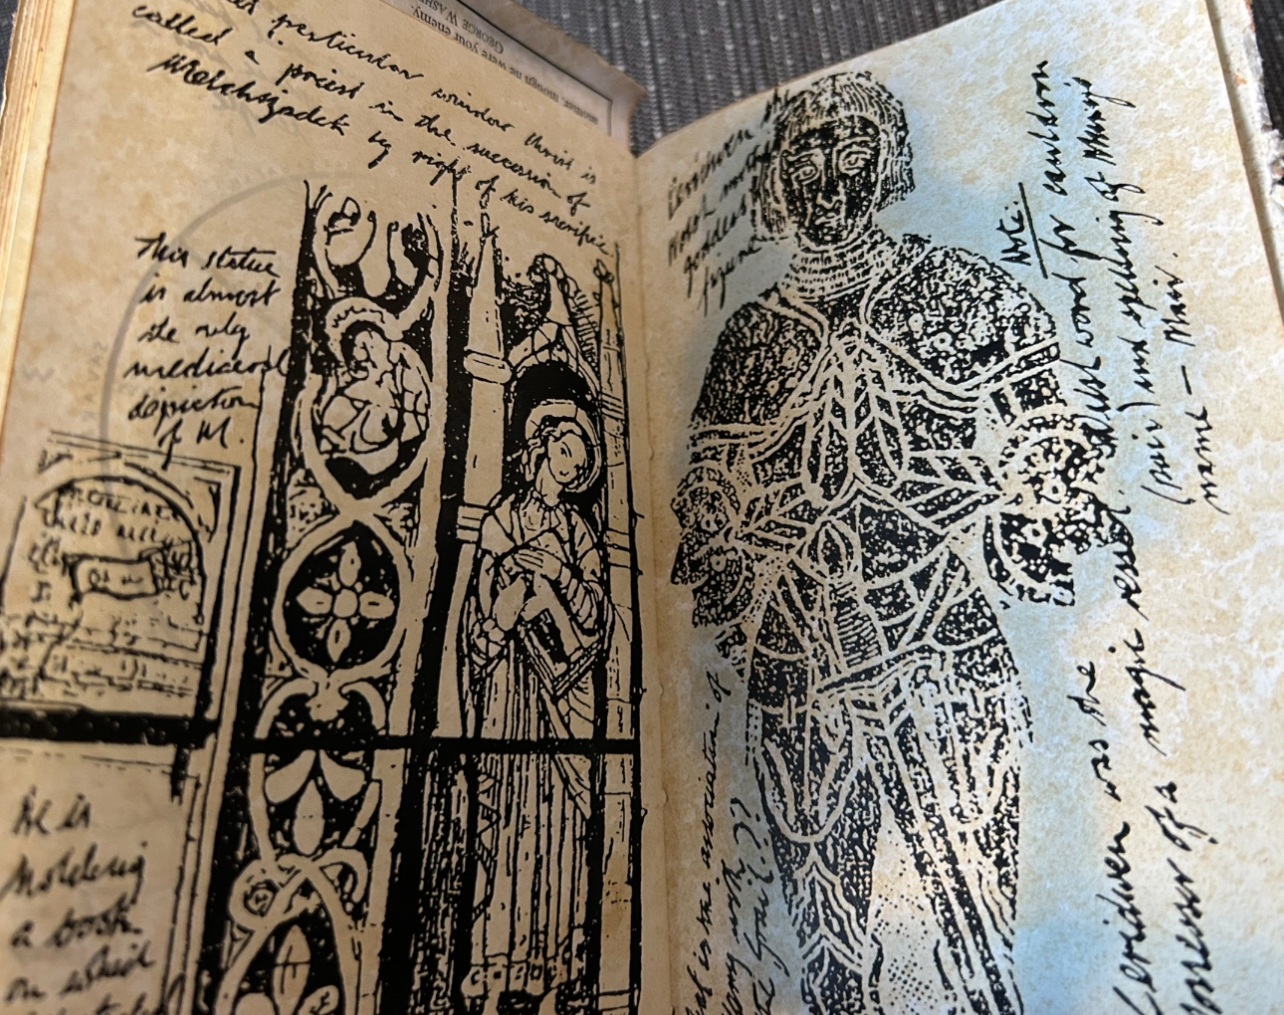 particular window Christ is
called a priest in the succession of
Melchizedek by right of his sacrifice
mother, though he were your enemy.
GEORGE WASH
This statue
is almost
the only
mediaeval
depiction
of M.
He is
holding
a book
on which
Ceridwen
goddess
Nte:
Welsh word for cauldron
(pair) and spelling of Mary's
name – Mair.
Ceridwen was the
possessor of a magic vessel.
is the association of
Mary with
the Grail??